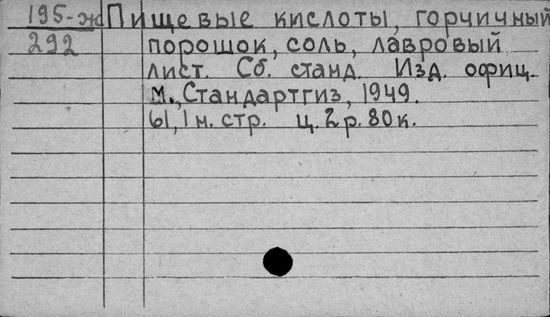 195-ж Пищевые кислоты, горчичный
292 порошок, соль, лавровый
лист. Сб. станд. Изд. офиц.
М., Стандартгиз, 1949.
61, 1 н. стр. ц. 2 р. 80 к.